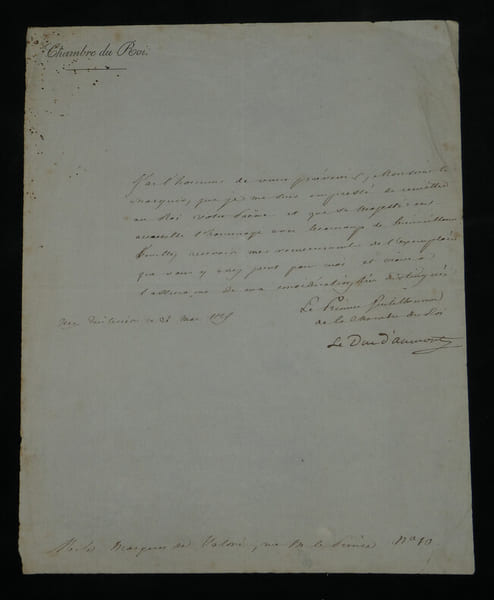 Chambre du Roi.
J'ai l'honneur de vous prévenir, Monsieur le
Marquis, que je me suis empressé de remettre
au Roi votre Poëme et que Sa Majesté en a
accueilli l'hommage avec beaucoup de bienveillance
Veuillez recevoir mes remerciments de l'exemplaire
que vous y avez joint pour moi et
l'assurance de ma considération très distinguée
Le Premier Gentilhomme
de la Chambre du Roi
Aux Tuileries ce 28 Mai
Le Duc d'Aumont
Mr le Marquis de Valori, rue No 10